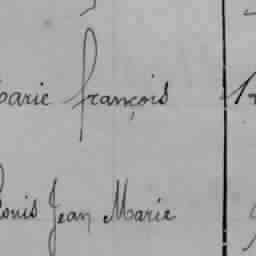 Marie François
Louis Jean Marie